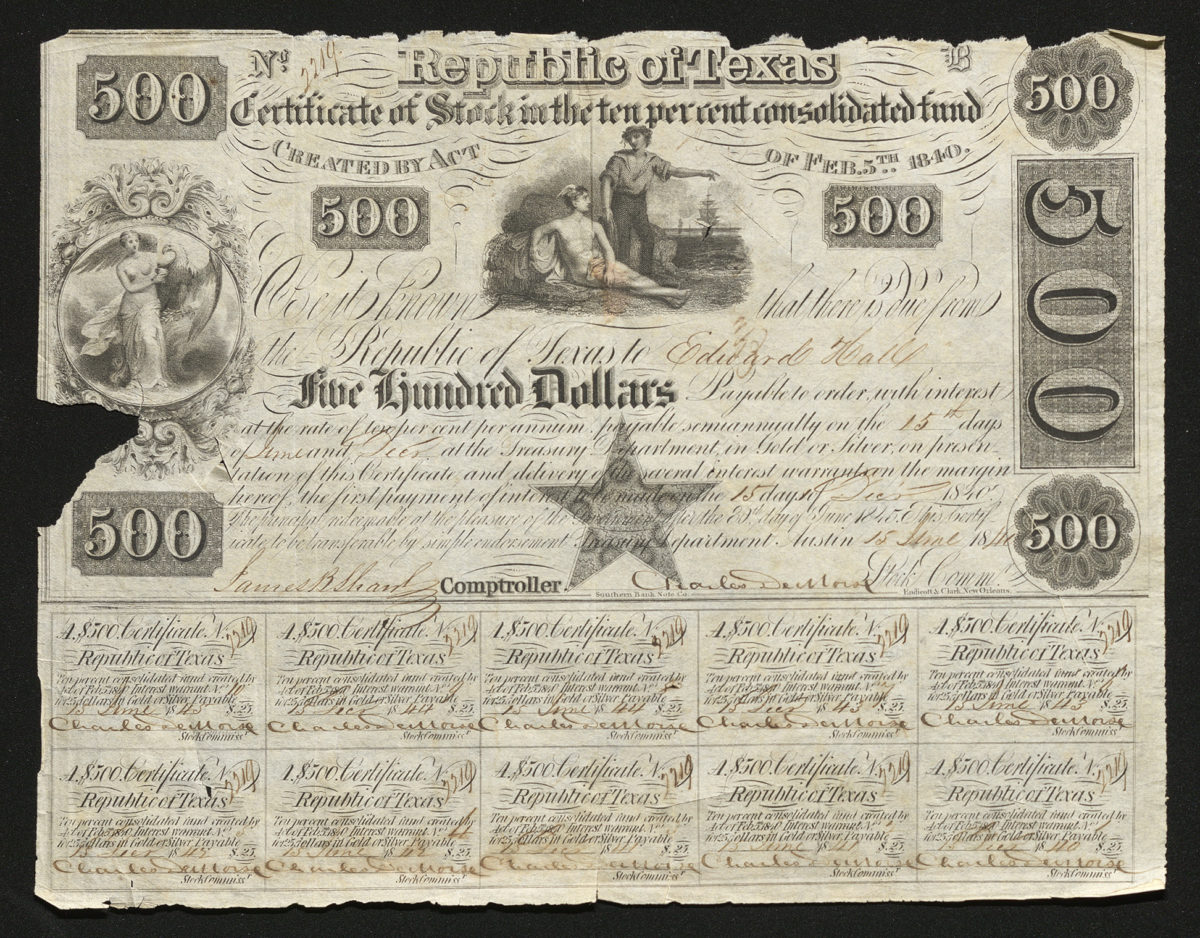 500
No. 2219.
Republic of Texas
B
500
Certificate of Stock in the ten per cent consolidated fund
CREATED BY ACT OF FEB. 5TH 1840.
500
500
500
Be it known that there is due from
the Republic of Texas to Edward Hall
Five Hundred Dollars Payable to order, with interest
at the rate of ten per cent per annum, payable semiannually on the 15th days
of June and Decr at the Treasury Department, in Gold or Silver, on presen-
tation of this Certificate and delivery of the several interest warrants on the margin
hereof, the first payment of interest to be made on the 15 days of Decr 1840
The principal redeemable at the pleasure of the Government after the 30th day of June 1845. This Certif-
icate to be transferable by simple endorsement. Treasury Department Austin 15 June 1840
500
500
James B Shaw Comptroller. Charles DeMorse Stock Commr.
Southern Bank Note Co. Endicott & Clark, New Orleans.
A. $500. Certificate. No. 2219
Republic of Texas
Ten per cent consolidated fund created by
Act of Feb 5 1840 Interest warrant No. 10
for 25 dollars in Gold or Silver Payable
1845 $.25
Charles DeMorse
Stock Commissr
A. $500. Certificate. No. 2219
Republic of Texas
Ten per cent consolidated fund created by
Act of Feb 5 1840 Interest warrant No.
for 25 dollars in Gold or Silver Payable
15 Decr 1844 $.25
Charles DeMorse
Stock Commissr
A. $500. Certificate. No. 2219
Republic of Texas
Ten per cent consolidated fund created by
Act of Feb 5 1840 Interest warrant No.
for 25 dollars in Gold or Silver Payable
15 June 1844 $.25
Charles DeMorse
Stock Commissr
A. $500. Certificate. No. 2219
Republic of Texas
Ten per cent consolidated fund created by
Act of Feb 5 1840 Interest warrant No.
for 25 dollars in Gold or Silver Payable
15 Decr 1843 $.25
Charles DeMorse
Stock Commissr
A. $500. Certificate. No. 2219
Republic of Texas
Ten per cent consolidated fund created by
Act of Feb 5 1840 Interest warrant No.
for 25 dollars in Gold or Silver Payable
15 June 1843 $.25
Charles DeMorse
Stock Commissr
A. $500. Certificate. No. 2219
Republic of Texas
Ten per cent consolidated fund created by
Act of Feb 5 1840 Interest warrant No.
for 25 dollars in Gold or Silver Payable
15 Decr 1842 $.25
Charles DeMorse
Stock Commissr
A. $500. Certificate. No. 2219
Republic of Texas
Ten per cent consolidated fund created by
Act of Feb 5 1840 Interest warrant No. 4
for 25 dollars in Gold or Silver Payable
15 June 1842 $.25
Charles DeMorse
Stock Commissr
A. $500. Certificate. No. 2219
Republic of Texas
Ten per cent consolidated fund created by
Act of Feb 5 1840 Interest warrant No.
for 25 dollars in Gold or Silver Payable
184 $.25
Charles DeMorse
Stock Commissr
A. $500. Certificate. No. 2219
Republic of Texas
Ten per cent consolidated fund created by
Act of Feb 5 1840 Interest warrant No.
for 25 dollars in Gold or Silver Payable
June 1841 $.25
Charles DeMorse
Stock Commissr
A. $500. Certificate. No. 2219
Republic of Texas
Ten per cent consolidated fund created by
Act of Feb 5 1840 Interest warrant No.
for 25 dollars in Gold or Silver Payable
15 Decr 1840 $.25
Charles DeMorse
Stock Commissr